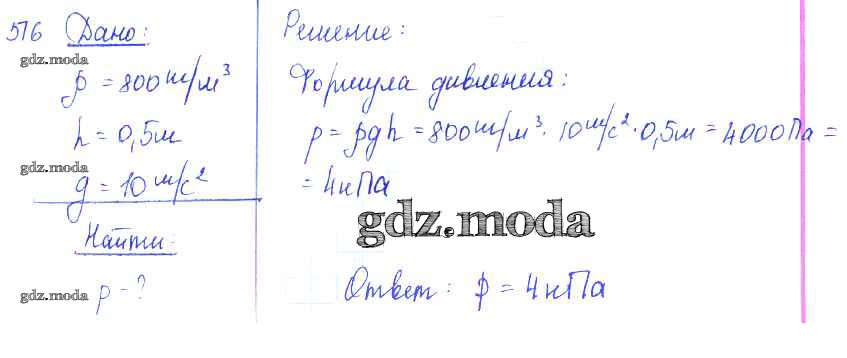 576 Дано:
gdz.moda
ρ = 800 кг/м³
h = 0,5м
gdz.moda
g = 10 м/с²
Найти:
gdz.moda p - ?
Решение:
Формула давления:
p = ρgh = 800 кг/м³ · 10 м/с² · 0,5м = 4000 Па =
= 4кПа
gdz.moda
Ответ: p = 4кПа